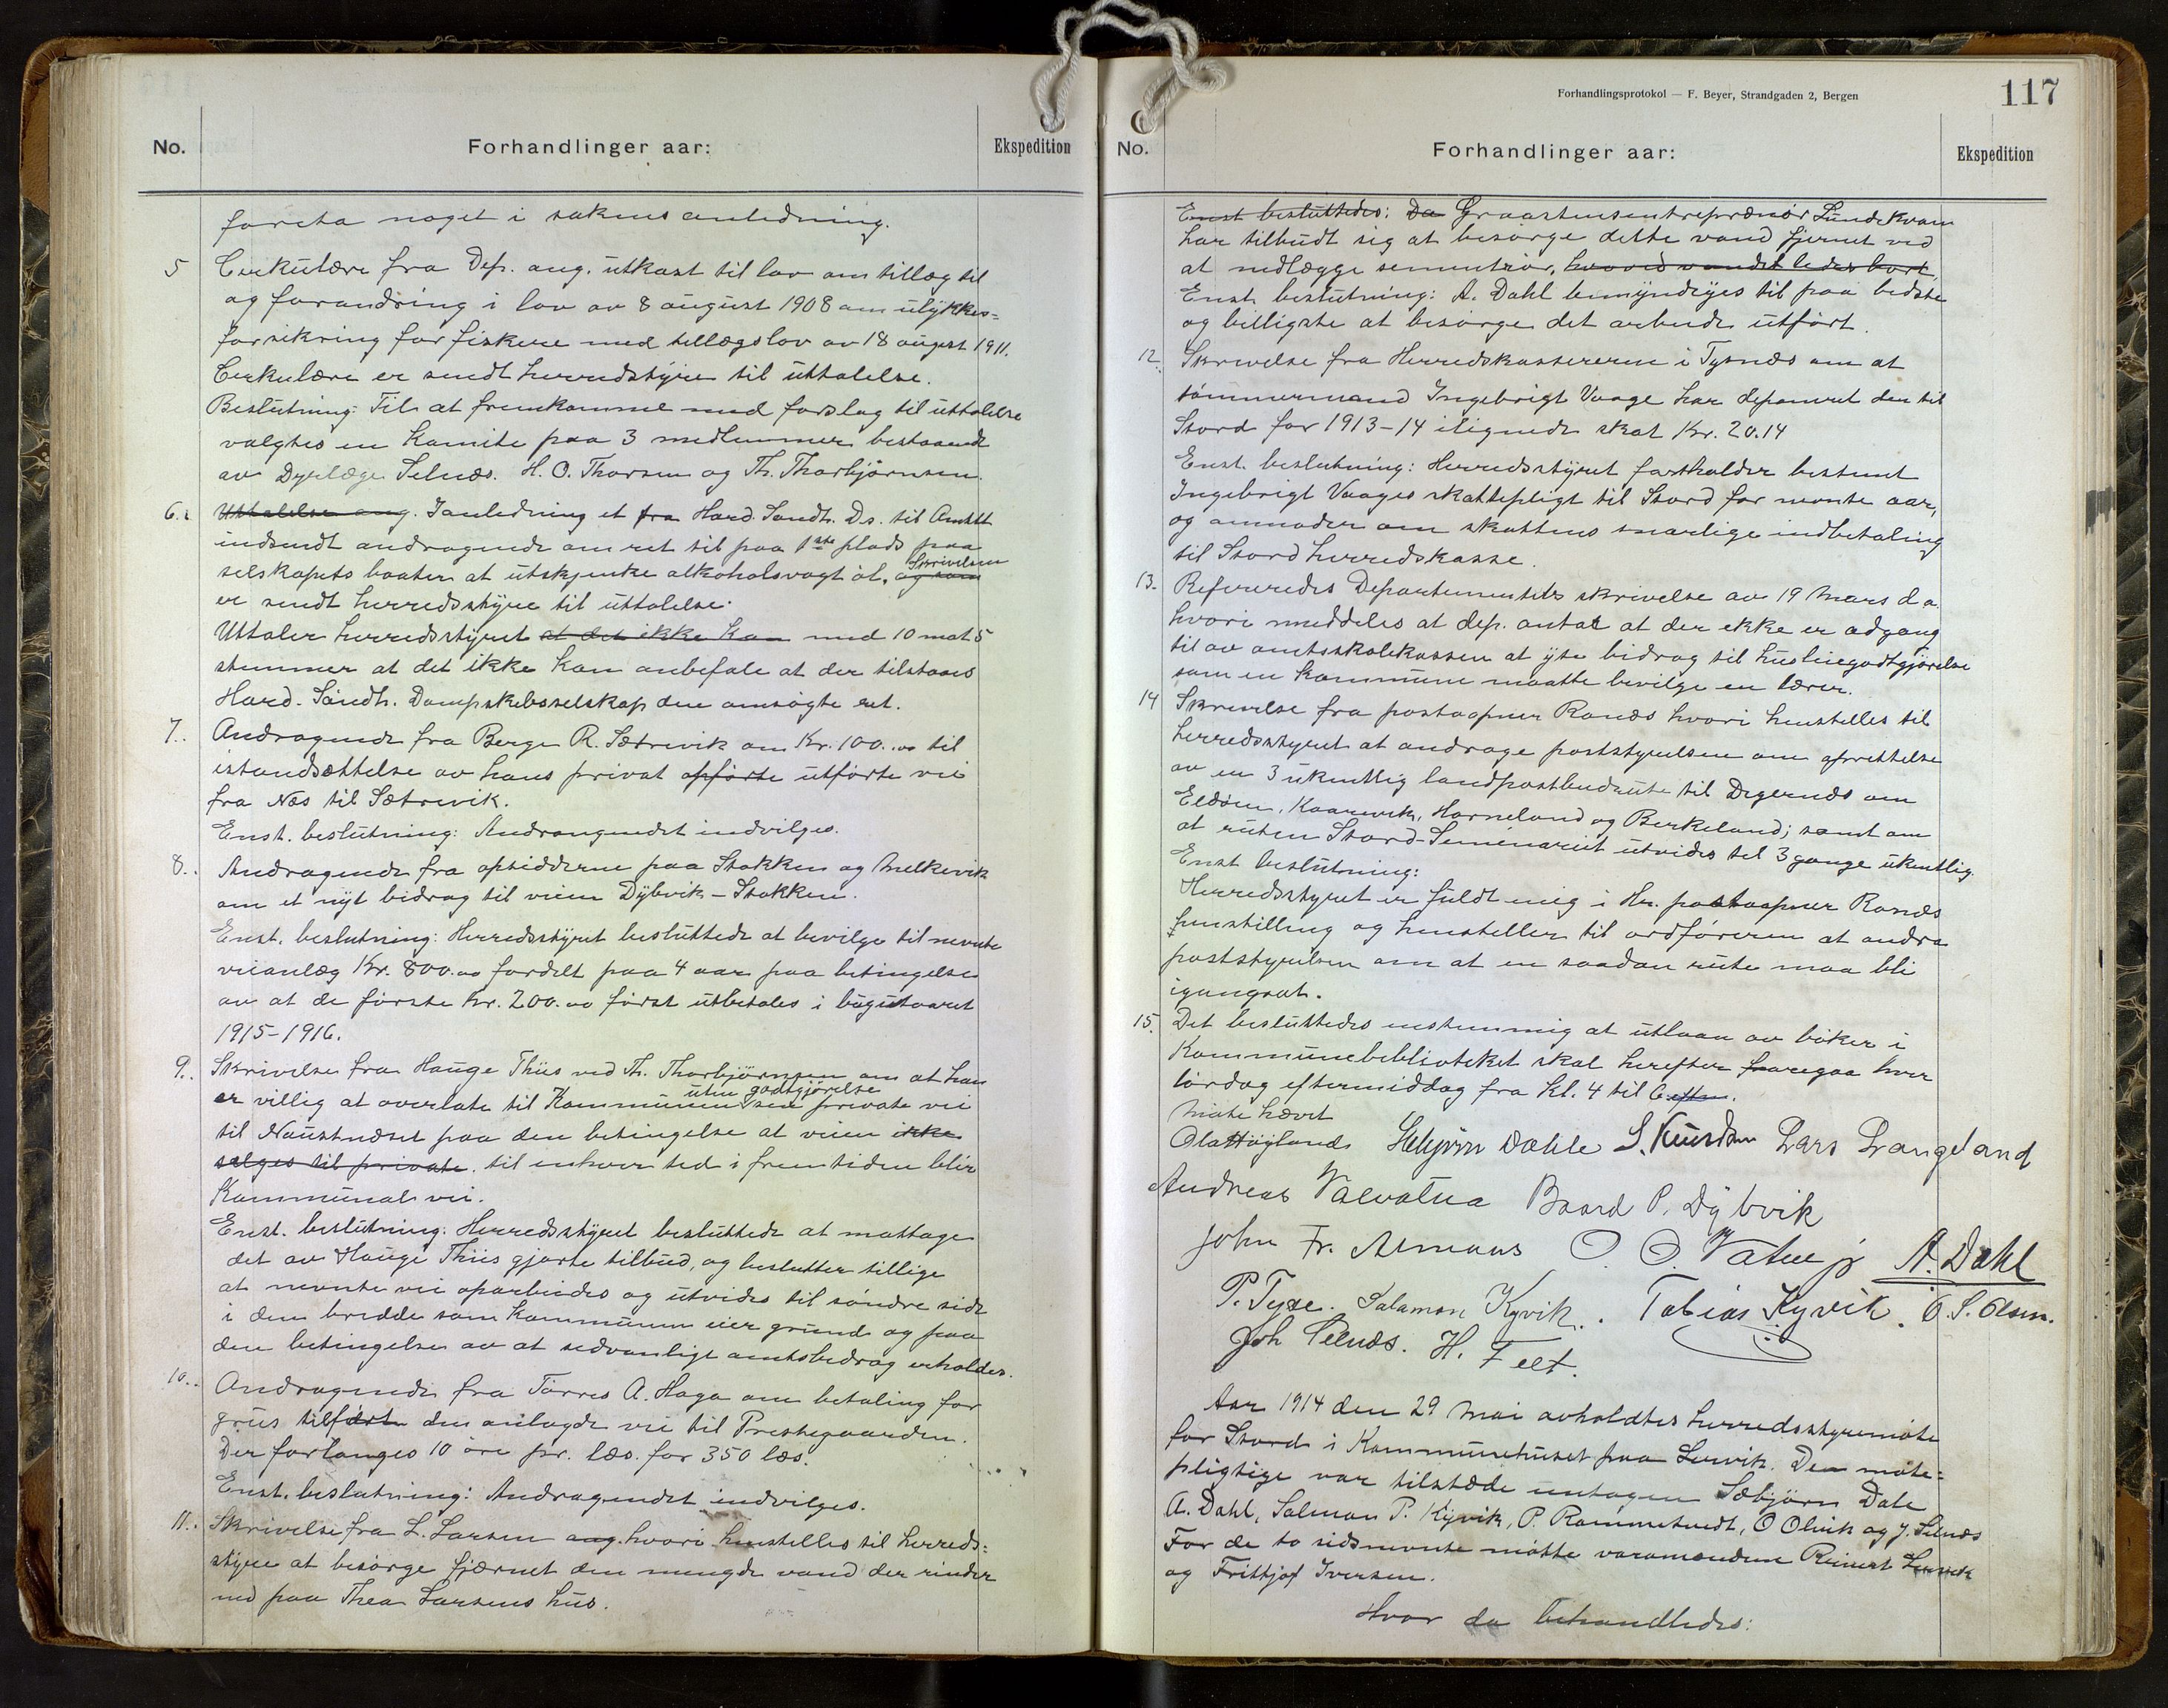 No.
Forhandlinger aar:
Ekspedition
foreta noget i sakens anledning.
5 Cirkulære fra Dep. ang. utkast til lov om tillæg til
og forandring i lov av 8 august 1908 om ulykkes=
forsikring for fiskere med tillægslov av 18 august 1911.
Cirkulære er sendt herredstyre til uttalelse.
Beslutning: Til at fremkomme med forslag til uttalelse
valgtes en komite paa 3 medlemmer bestaaende
av Dyrlæge Selnæs. H. O. Thorsen og Th. Thorbjørnsen.
6. Uttalelse ang. I anledning et fra Hard. Søndh. Ds. til Amtet
indsendt andragende om ret til paa 1ste plads paa
selskapets baater at utskjenke alkoholsvagt øl, og som Skrivelsen
er sendt herredsstyre til uttalelse.
Uttaler herredsstyret at det ikke kan med 10 mot 5
stemmer at det ikke kan anbefale at der tilstaaes
Hard. Søndh. Dampskibsselskap den omsøgte ret.
7. Andragende fra Berge R. Sætrevik om Kr. 100.00 til
istandsættelse av hans privat opførte utførte vei
fra Næs til Sætrevik.
Enst. beslutning: Andrangendet indvilges.
8. Andragende fra opsidderne paa Stokken og Melkevik
om et nyt bidrag til veien Dybvik - Stokken.
Enst. beslutning: Herredsstyret besluttede at bevilge til nevnte
veianlæg Kr. 800.00 fordelt paa 4 aar paa betingelse
av at de første Kr. 200.00 først utbetales i bugutaaret
1915-1916.
9. Skrivelse fra Hauge Thiis ved Th. Thorbjørnsen om at han
er villig at overlate til Kommunen uten godtgjørelse sin private vei
til Naustneset paa den betingelse at veien ikke
selges til private. til enhver tid i fremtiden blir
Kommunal vei.
Enst. beslutning: Herredsstyret besluttede at mottage
det av Hauge Thiis gjorte tilbud, og beslutter tillige
at nevnte vei oparbeides og utvides til søndre side
i den bredde som kommunen eier grund og paa
den betingelse av at sedvanlige amtsbidrag erholdes.
10. Andragende fra Tørres A. Haga om betaling for
grus tilført den anlagde vei til Prestegaarden.
Der forlanges 10 øre pr. læs. for 350 læs.
Enst. beslutning: Andragendet indvilges.
11. Skrivelse fra L. Larsen ang. hvori henstilles til herreds=
styre at besørge fjærnet den mengde vand der rinder
ned paa Thea Larsens hus.
Forhandlingsprotokol — F. Beyer, Strandgaden 2, Bergen
117
No.
Forhandlinger aar:
Ekspedition
Enst besluttedes: Da Graastensentreprenør Lunde Kvam
har tilbudt sig at besørge dette vand fjernet ved
at nedlægge sementrør, hvorved vandet ledes bort,
Enst. beslutning: A. Dahl bemyndiges til paa bedste
og billigste at besørge det arbeide utført.
12. Skrivelse fra Herredskassereren i Tysnæs om at
tømmermand Ingebrigt Vaage har deponeret den til
Stord for 1913-14 ilignede skat Kr. 20.14
Enst. beslutning: Herredsstyret fastholder bestemt
Ingebrigt Vaages skattepligt til Stord for nevnte aar,
og anmoder om skattens snarlige indbetaling
til Stord herredskasse.
13. Refereredes Departementets skrivelse av 19 mars d.a.
hvori meddeles at dep. antar at der ikke er adgang
til av amtsskolekassen at yte bidrag til husleiegodtgjørelse
som en kommune maatte bevilge en lærer.
14 Skrivelse fra postaapner Ranæs hvori henstilles til
herredsstyret at andrage poststyrelsen om oprettelse
av en 3 ukentlig landpostbudrute til Digernæs om
Eldøen, Kaarevik, Horneland og Birkeland; samt om
at ruten Stord-Seminariet utvides til 3 gange ukentlig.
Enst beslutning:
Herredsstyret er fuldt enig i Hr. postaapner Ranæs
henstilling og henstiller til ordføreren at andra
poststyrelsen om at en saadan rute maa bli
igangsat.
15. Det besluttedes enstemmig at utlaan av bøker i
Kommunebiblioteket skal herefter foregaa hver
lørdag eftermiddag fra kl. 4 til 6 eftm.
Møte hævet
Ola Høgland Sebjørn Dahle S. Knutsen Lars Langeland
Andreas Valvatna Baard P. Dybvik
John Fr. Aimaas O. O. Vatne jr A. Dahl
P. Tyse. Salamon Kyvik. Tobias Kyvik. O. S. Olsen.
Joh Selnæs. H. Feet.
Aar 1914 den 29 Mai avholdtes herredsstyremøte
for Stord i Kommunehuset paa Lervik. De møte=
pligtige var tilstæde untagen Sebjørn Dale
A. Dahl, Salmon P. Kyvik, P. Rommetvedt, O Olvik og J. Selnæs
For de to sidsnevnte møtte varamændene Reinert Lervik
og Frithjof Iversen.
Hvor da behandledes: